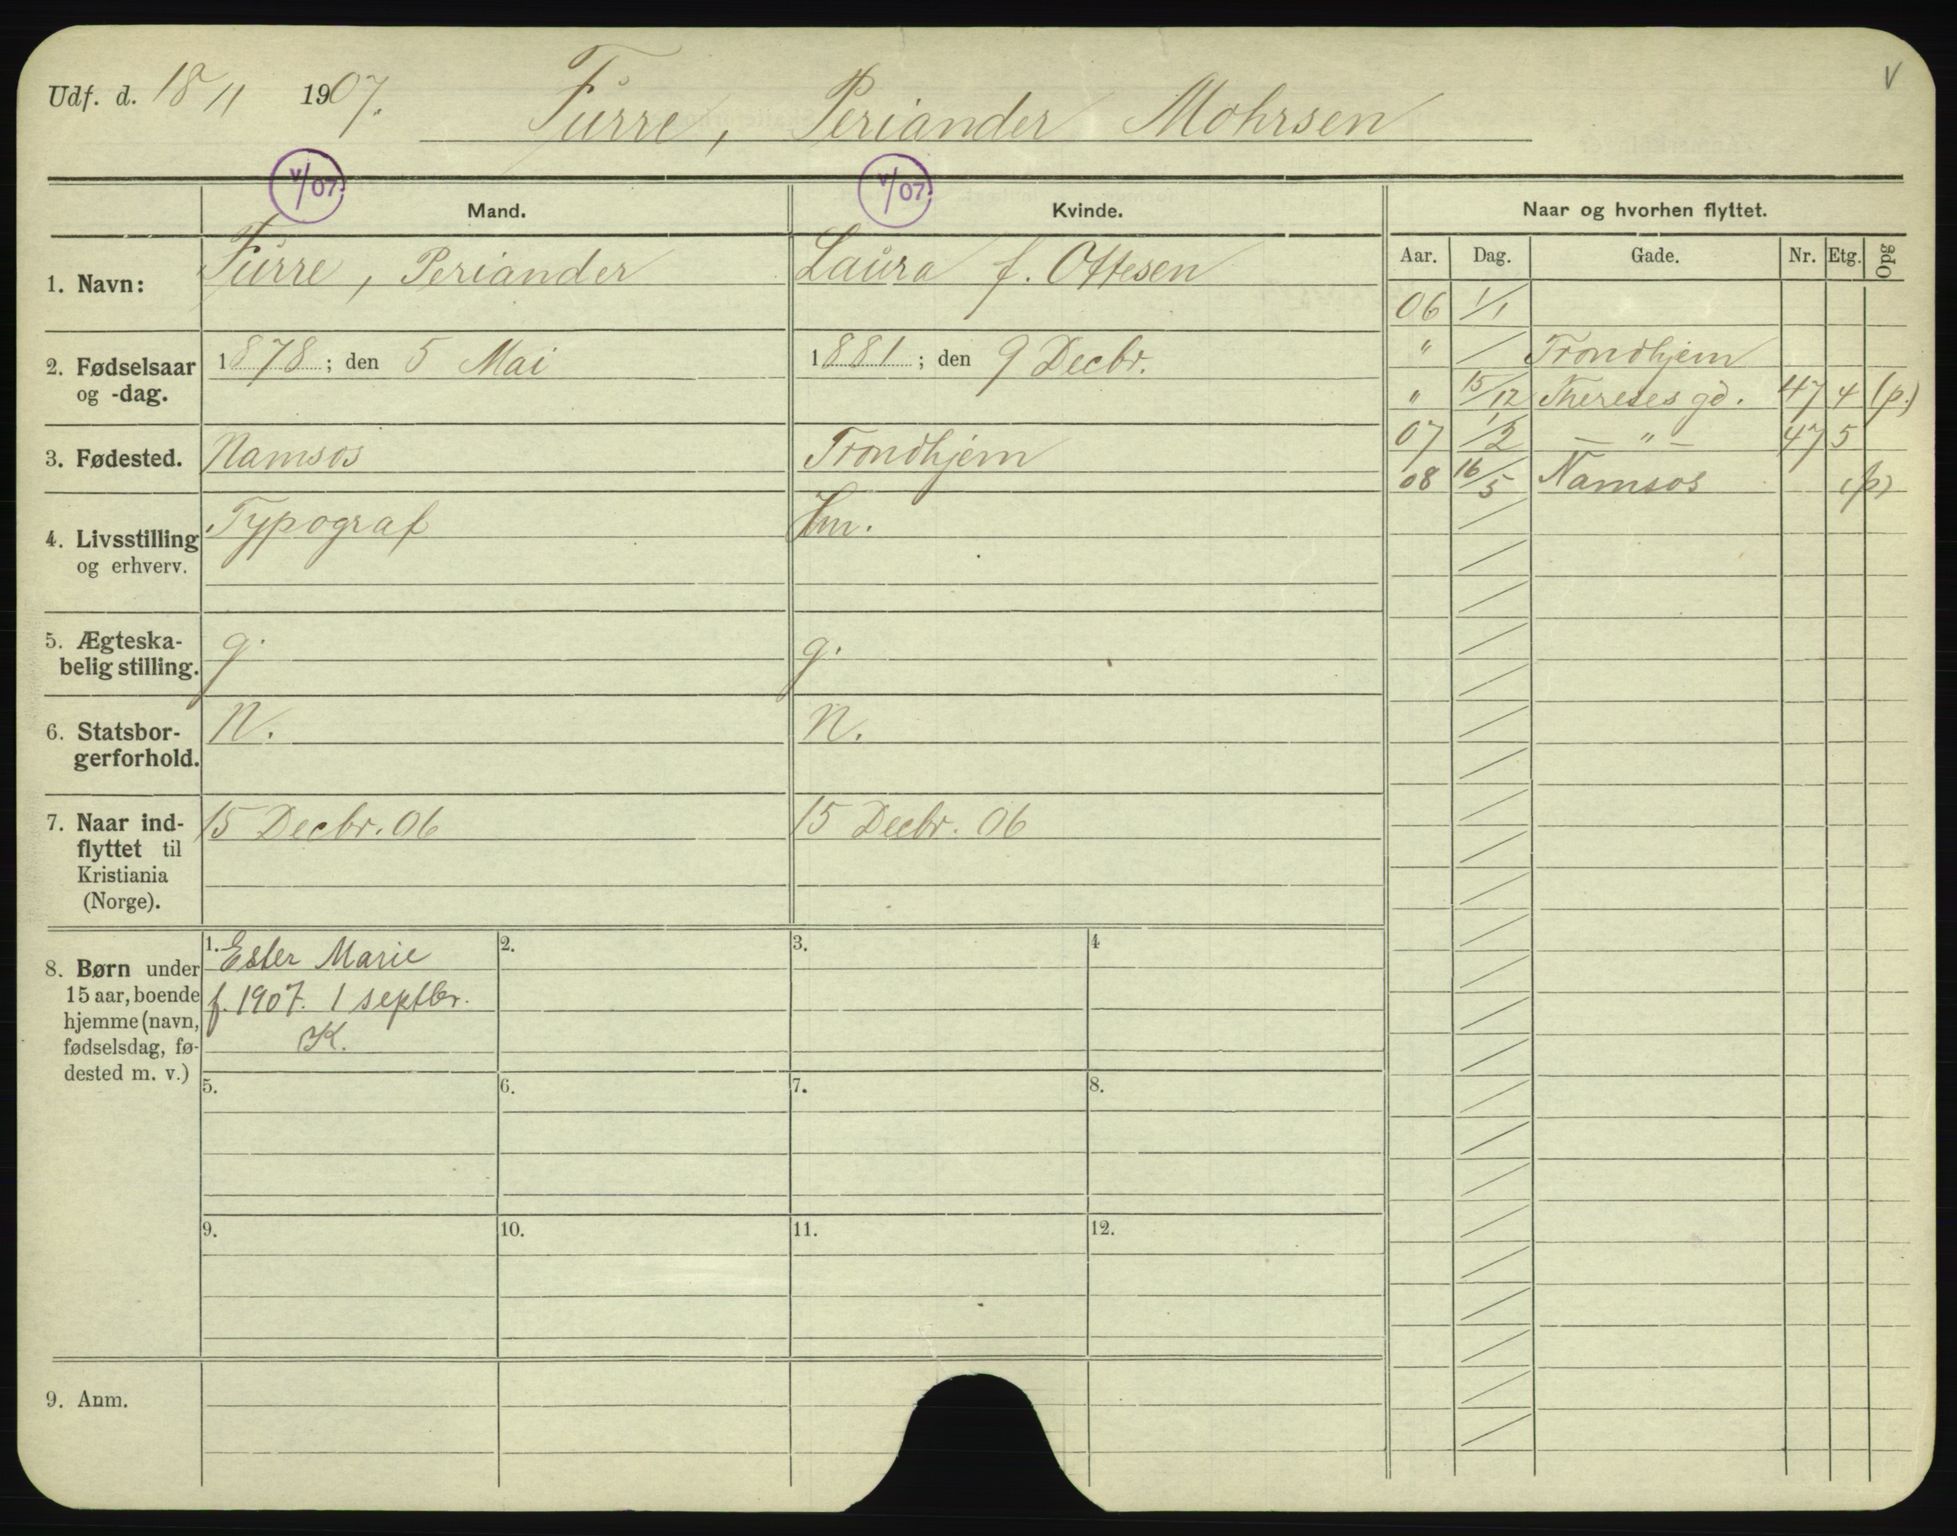 Udf. d. 18/11 1907. Furre, Periander Mohrsen
V
V/07. V/07.
Mand. Kvinde. Naar og hvorhen flyttet.
Aar. Dag. Gade. Nr. Etg. Opg
1. Navn: Furre, Periander Laura f. Ottesen
06 1/1
2. Fødselsaar og -dag. 1878; den 5 Mai 1881; den 9 Decbr.
" / Trondhjem
" 15/12 Thereses gd. 47 4 (p.)
07 1/2 — " — 47 5
08 16/5 Namsos (p)
3. Fødested. Namsos Trondhjem
4. Livsstilling og erhverv. Typograf Hm.
5. Ægteska-
belig stilling. g. g.
6. Statsbor-
gerforhold. N. N.
7. Naar ind-
flyttet til
Kristiania
(Norge).
15 Decbr. 06 15 Decbr. 06
8. Børn under
15 aar, boende
hjemme (navn,
fødselsdag, fø-
dested m. v.)
1. Ester Marie
f. 1907. 1 septbr.
K.
2. 3. 4
5. 6. 7. 8.
9. 10. 11. 12.
9. Anm.